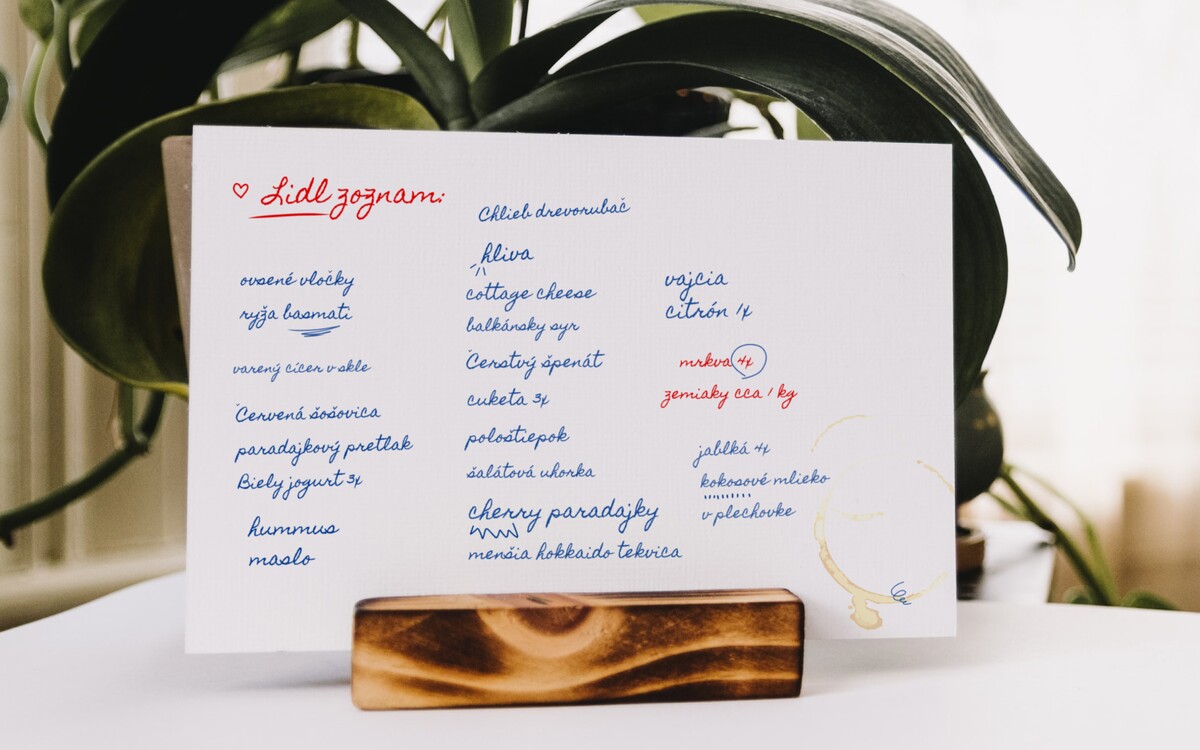 Lidl zoznam:
ovsené vločky
ryža basmati
varený cícer v skle
Červená šošovica
paradajkový pretlak
Biely jogurt 3x
hummus
maslo
Chlieb drevorubač
hliva
cottage cheese
balkánsky syr
Čerstvý špenát
cuketa 3x
pološtiepok
šalátová uhorka
cherry paradajky
menšia hokkaido tekvica
vajcia
citrón 1x
mrkva 4x
zemiaky cca 1 kg
jablká 4x
kokosové mlieko
v plechovke